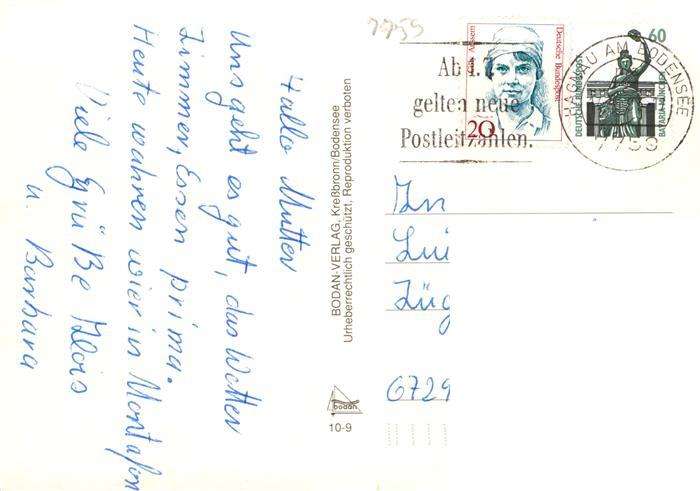 Hallo Mutter
Uns geht es gut, das Wetter
Zimmer, Essen prima.
Heute wahren wier in Montafon
Viele Grüße Alois
u. Barbara
BODAN-VERLAG, Kreßbronn/Bodensee
Urheberrechtlich geschützt, Reproduktion verboten
bodan
10-9
7759
Deutsche Bundespost
20
60
DEUTSCHE BUNDESPOST
BAVARIA MÜNCHEN
HAGNAU AM BODENSEE
7759
Ab 1.
gelten neue
Postleitzahlen.
An
Lui
Züg
6729